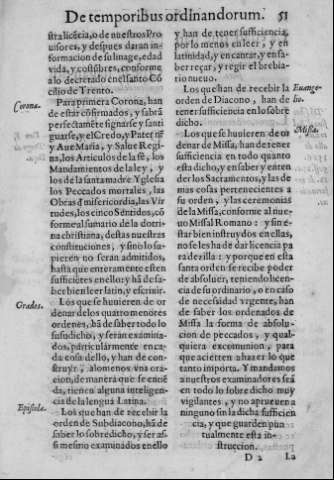 De temporibus ordinandorum. 51
stra licẽcia, o de nuestros Pro
uisores, y despues daran in-
formacion de su linage, edad
vida, y costũbres, conforme
a lo decretado en el santo Cõ
cilio de Trento.
Corona.
Para primera Corona, han
de estar cõfirmados, y sabrã
perfectamẽte signarse y santi
guarse, y el Credo, y Pater nr̃
y Aue Maria, y Salue Regi
na, los Articulos de la fê, los
Mandamientos de la ley, y
los de la santa madre Yglesia
los Peccados mortales, las
Obras d̃ misericordia, las Vir
tudes, los cinco Sentidos, cõ
forme al sumario de la doctri
na christiana, de stas nuestras
constituciones, y sino lo sa-
pieren no seran admitidos,
hasta que enteramente esten
suficiẽtes en ello: y hã de sa-
ber bien leer latin, y escriuir.
Grados.
Los que se huuieren de or
denar de los quatro menores
ordenes, hã de saber todo lo
susodicho, y seran examina-
dos, particularmente en ca-
da cosa dello, y han de con-
struyr, alomenos vna ora-
cion, de manera que se entiẽ
da, tienen alguna inteligen-
cia de la lengua Latina.
Epistola.
Los que han de recebir la
orden de Subdiacono, hã de
saber lo sobredicho, y ser assi
mesmo examinados en ello
y han de tener suficiencia,
por lo menos en leer, y en
latinidad, y en cantar, y en sa-
ber reçar, y regir el brebia-
rio nueuo.
Euange-
lio.
Los que han de recebir la
orden de Diacono, han de
tener suficiencia en lo sobre
dicho.
Missa.
Los que se huuieren de or
denar de Missa, han de tener
suficiencia en todo quanto
esta dicho, y en saber y enten
der los Sacramentos, y las de
mas cosas pertenecientes a
su orden, y las ceremonias
de la Missa, conforme al nue-
uo Missal Romano: y sin e-
star bien instruydos en ellas,
no se les ha de dar licencia pa
ra dezilla: y porque en esta
santa orden se recibe poder
de absoluer, teniendo licen-
cia de su ordinario, o en caso
de necessidad vrgente, han
de saber los ordenados de
Missa la forma de absolu-
cion de peccados, y qual-
quiera excomunion, para
que acierten a hazer lo que
tanto importa. Y mandamos
a nuestros examinadores seã
en todo lo sobre dicho muy
vigilantes, y no aprueuen a
ninguno sin la dicha suficien
cia, y que guarden pun
tualmente esta in-
struccion.
D 2 La